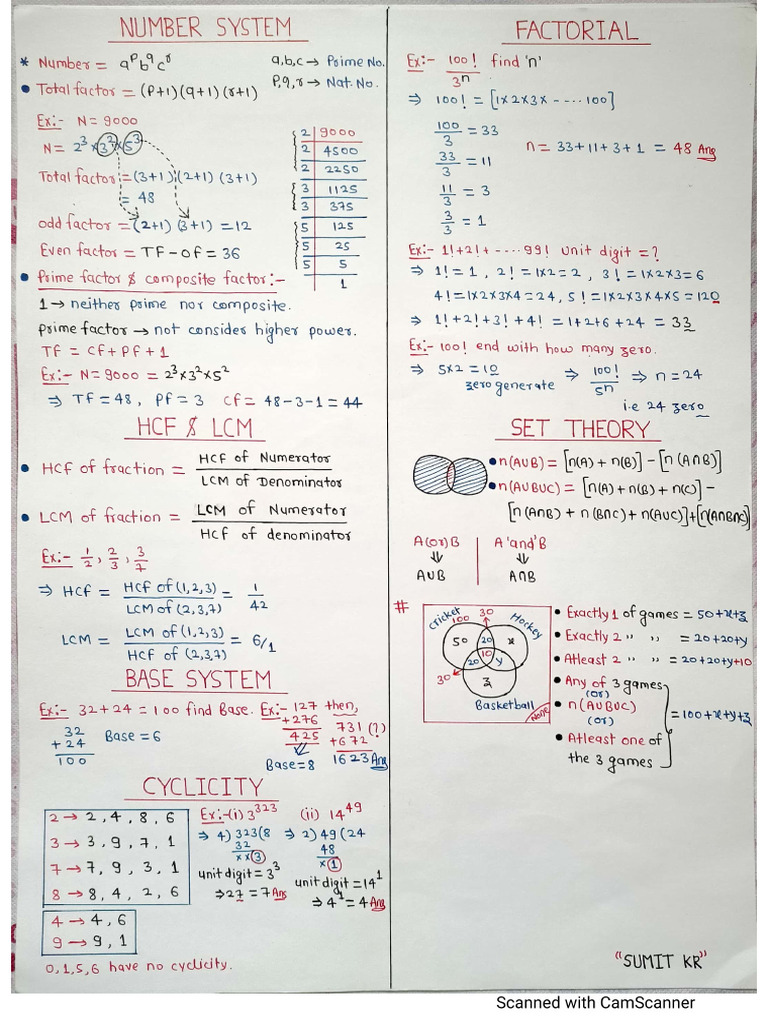 NUMBER SYSTEM
* Number = a^p b^q c^r
a,b,c → Prime No.
P,q,r → Nat. No.
• Total factor = (P+1)(q+1)(r+1)
Ex:- N = 9000
N = 2^3 × 3^2 × 5^3
Total factor = (3+1) (2+1) (3+1)
= 48
odd factor = (2+1) (3+1) = 12
Even factor = TF - OF = 36
2 | 9000
2 | 4500
2 | 2250
3 | 1125
3 | 375
5 | 125
5 | 25
5 | 5
1
• Prime factor & composite factor:-
1 → neither prime nor composite.
prime factor → not consider higher power.
TF = CF + PF + 1
Ex:- N = 9000 = 2^3 × 3^2 × 5^2
⇒ TF = 48, PF = 3 CF = 48-3-1 = 44
HCF & LCM
• HCF of fraction = HCF of Numerator
LCM of Denominator
• LCM of fraction = LCM of Numerator
HCF of denominator
Ex:- 1/2, 2/3, 3/7
⇒ HCF = HCF of (1,2,3) / LCM of (2,3,7) = 1/42
LCM = LCM of (1,2,3) / HCF of (2,3,7) = 6/1
BASE SYSTEM
Ex:- 32 + 24 = 100 find Base.
32
+ 24
100
Base = 6
Ex:- 127 then,
+276
425
Base = 8
731 (?)
+672
1623 Ans
CYCLICITY
2 → 2, 4, 8, 6
3 → 3, 9, 7, 1
7 → 7, 9, 3, 1
8 → 8, 4, 2, 6
4 → 4, 6
9 → 9, 1
0,1,5,6 have no cyclicity.
Ex:- (i) 3^323
⇒ 4) 323 (8
32
××3
unit digit = 3^3
⇒ 27 = 7 Ans
(ii) 14^49
⇒ 2) 49 (24
48
×1
unit digit = 14^1
⇒ 4^1 = 4 Ans
FACTORIAL
Ex:- 100! / 3^n find 'n'
⇒ 100! = [1×2×3× ---- 100]
100/3 = 33
33/3 = 11
11/3 = 3
3/3 = 1
n = 33 + 11 + 3 + 1 = 48 Ans
Ex:- 1! + 2! + ---- 99! unit digit = ?
⇒ 1! = 1, 2! = 1×2 = 2, 3! = 1×2×3 = 6
4! = 1×2×3×4 = 24, 5! = 1×2×3×4×5 = 120
⇒ 1! + 2! + 3! + 4! = 1+2+6+24 = 33
Ex:- 100! end with how many zero.
⇒ 5×2 = 10 ⇒ 100!/5^n ⇒ n = 24
zero generate
i.e 24 zero
SET THEORY
• n(A∪B) = [n(A) + n(B)] - [n(A∩B)]
• n(A∪B∪C) = [n(A) + n(B) + n(C)] -
[n(A∩B) + n(B∩C) + n(A∪C)] + [n(A∩B∩C)]
A(or)B
⇓
A∪B
A 'and' B
⇓
A∩B
#
Cricket
100
30
Hockey
50
20
x
10
20
y
30
z
Basketball
None
• Exactly 1 of games = 50+x+z
• Exactly 2 " " = 20+20+y
• Atleast 2 " " = 20+20+y+10
• Any of 3 games
(or)
• n(A∪B∪C) = 100+x+y+z
(or)
• Atleast one of
the 3 games
"SUMIT KR"
Scanned with CamScanner